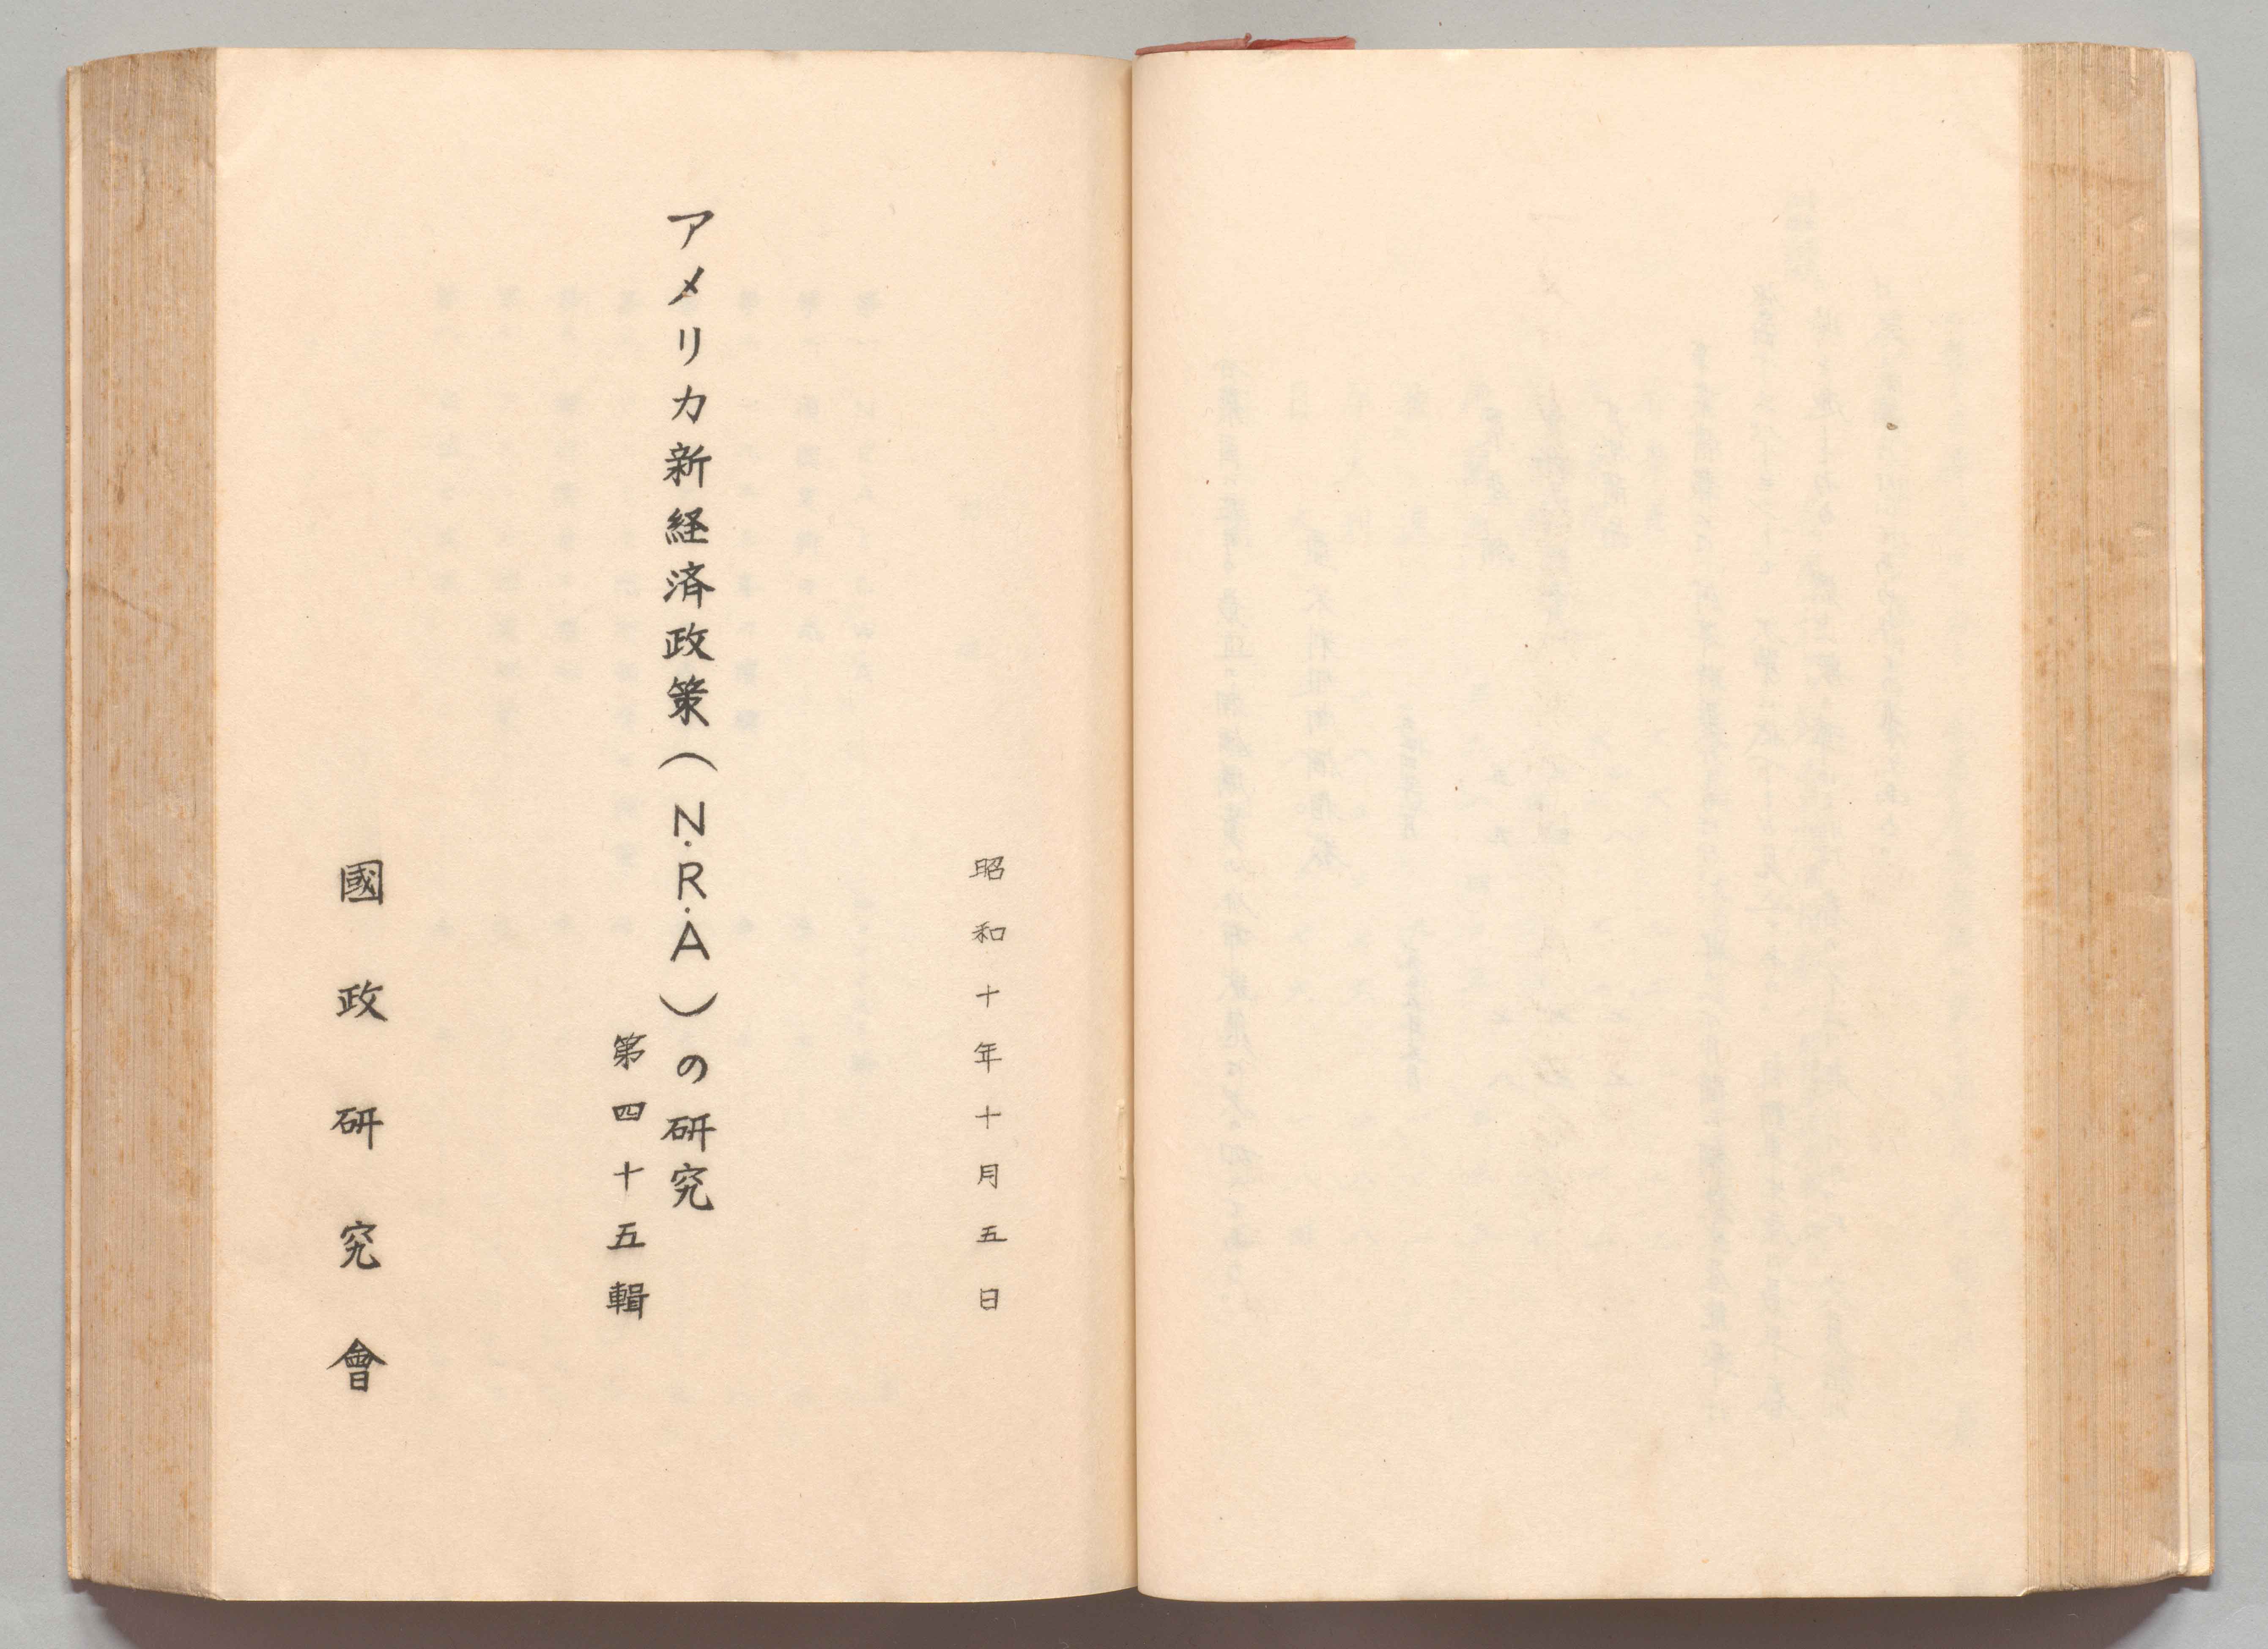 昭和十年十月五日
アメリカ新経済政策(N.R.A)の研究
第四十五輯
國政研究會